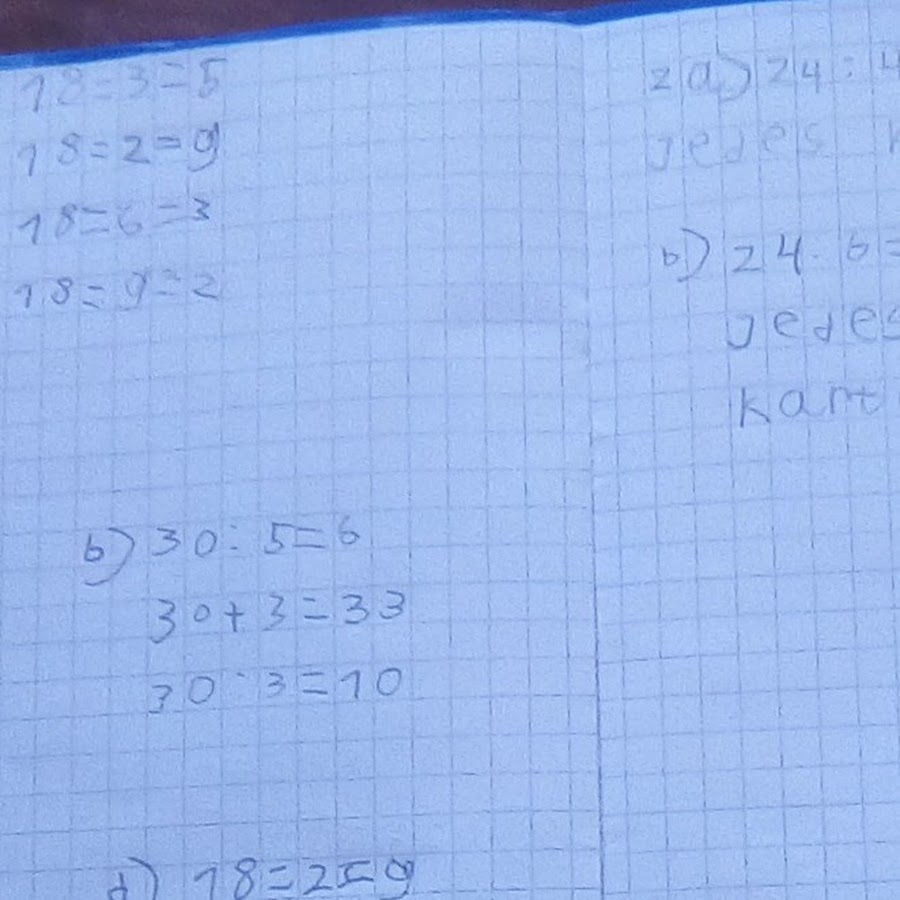 18=3=5
18=2=9
18=6=3
18=9=2
b) 30:5=6
30+3=33
30:3=10
d) 18=2=9
2 a) 24:4
Jedes
b) 24:6=
Jedes
kann